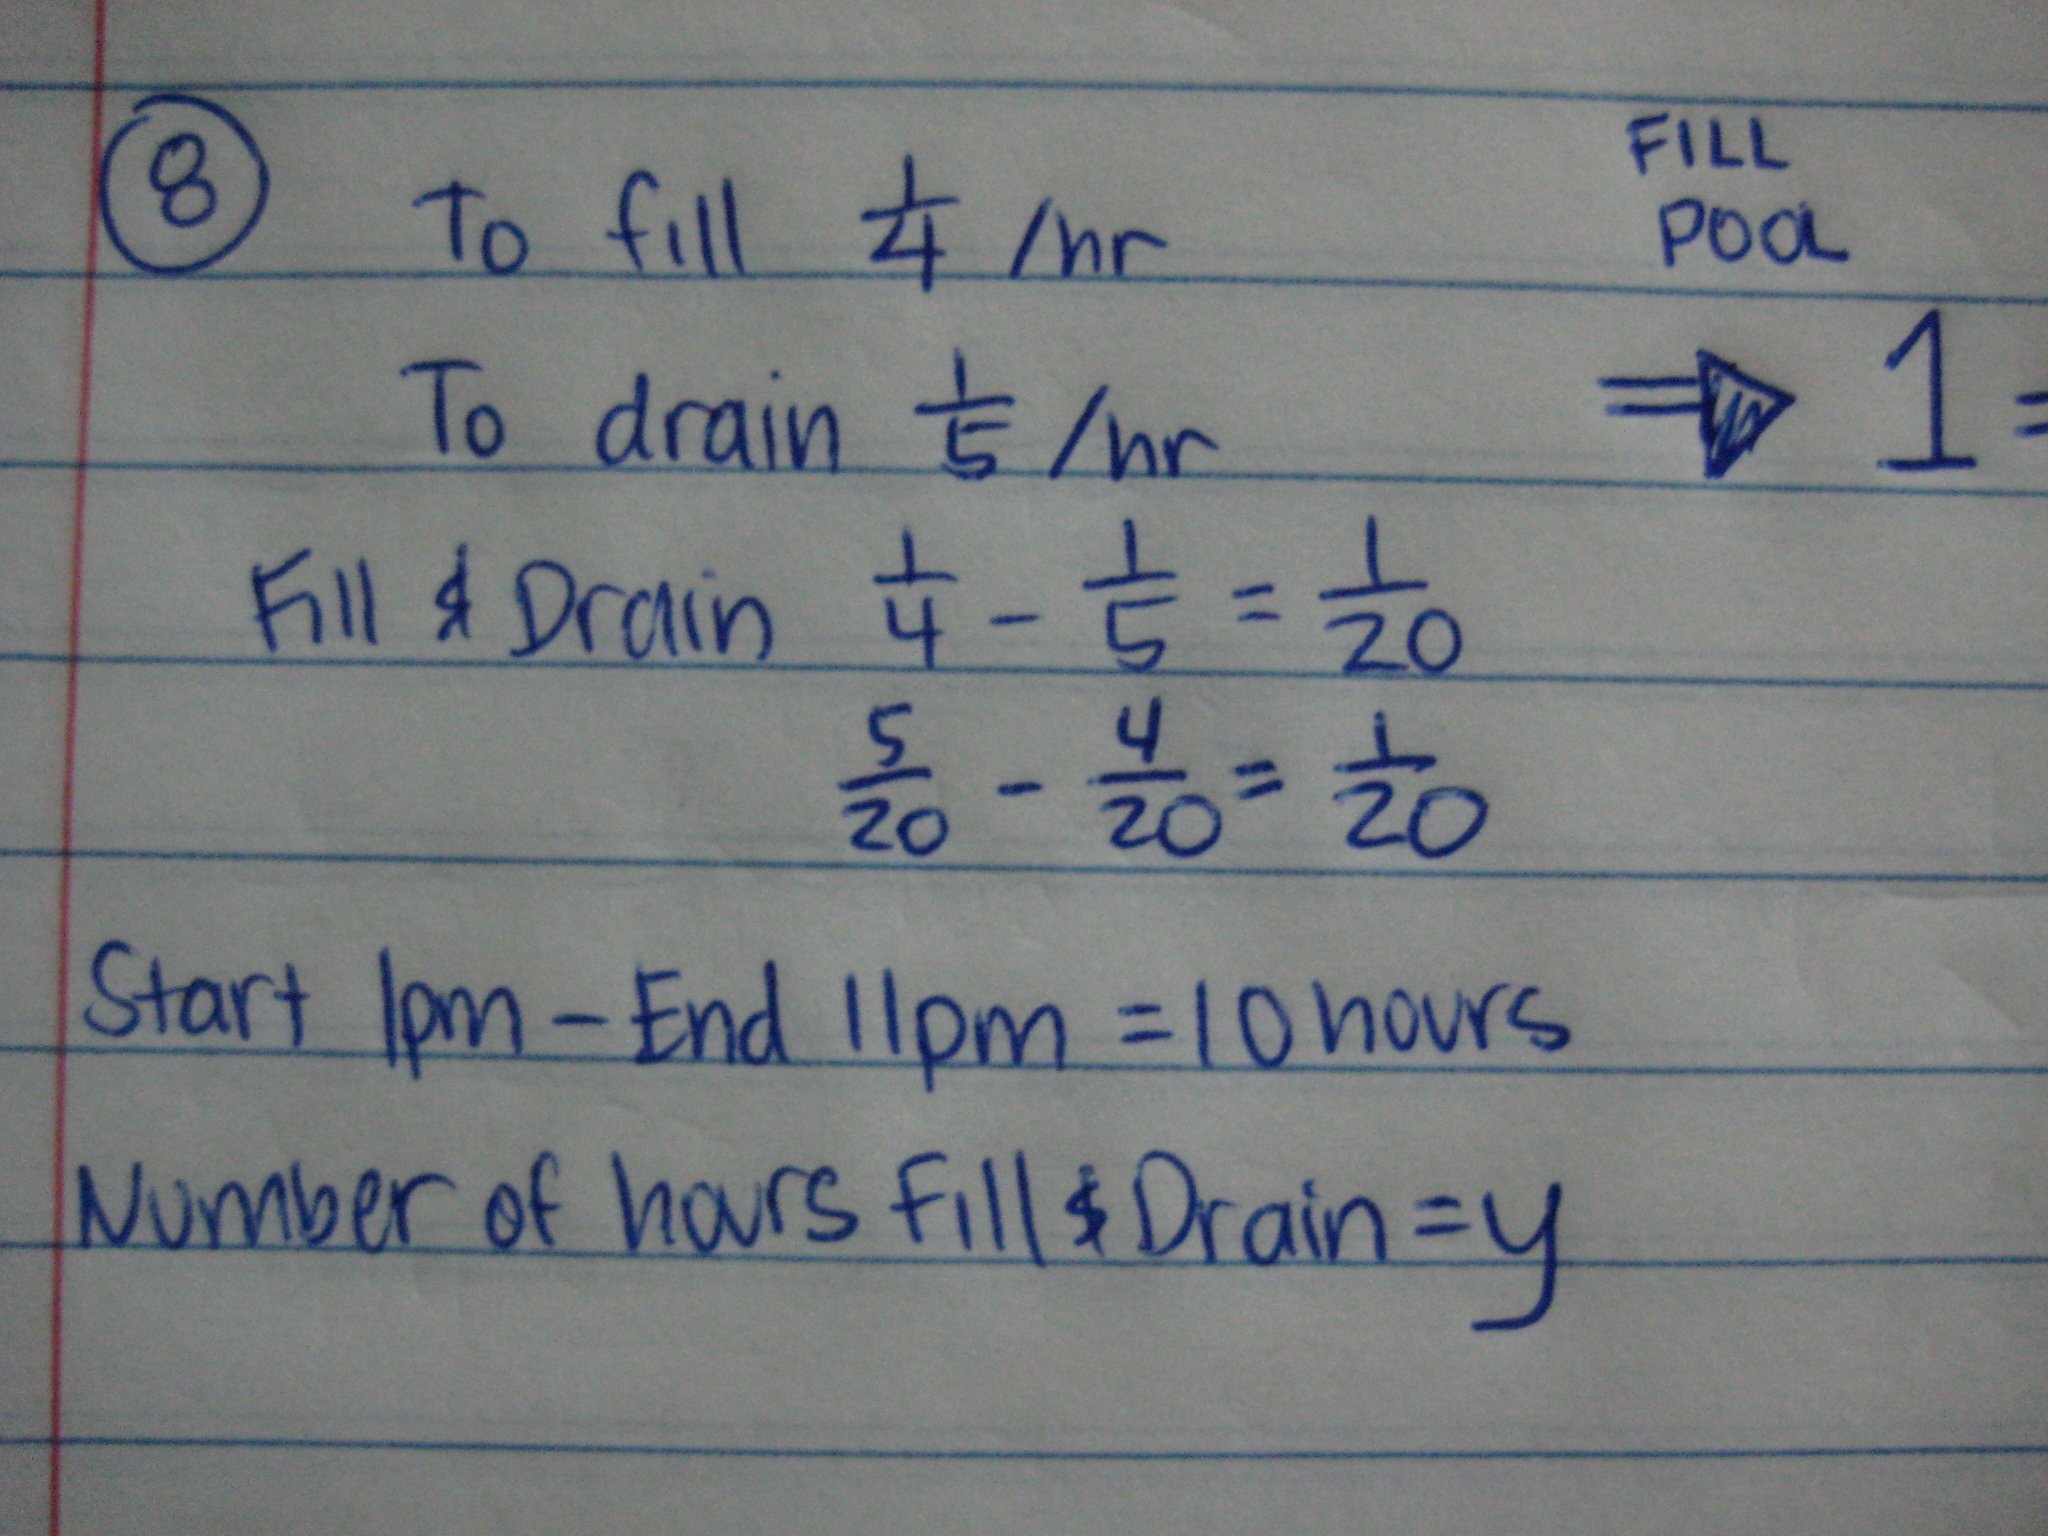 8 To fill 1/4 /hr
To drain 1/5 /hr
Fill & Drain 1/4 - 1/5 = 1/20
5/20 - 4/20 = 1/20
Start 1pm - End 11pm = 10 hours
Number of hours Fill & Drain = y
FILL
POOL
⇒ 1 =